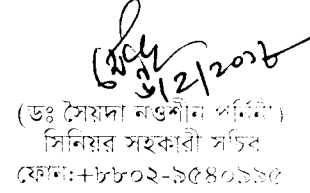 ৬/2/2০১৮
(ডঃ সৈয়দা নওশীন পর্ণিনী)
সিনিয়র সহকারী সচিব
ফোন:+৮৮০২-৯৫৪০৯৯৫